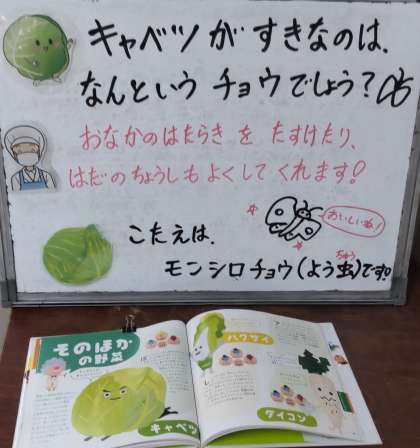 キャベツが すきなのは、
なんという チョウでしょう？
おなかのはたらき を たすけたり、
はだのちょうし も よくして くれます！
おいしいね！
こたえは、
ちゅう
モンシロチョウ(よう虫)です。
そのほか
の野菜
ハクサイ
キャベツ
ダイコン